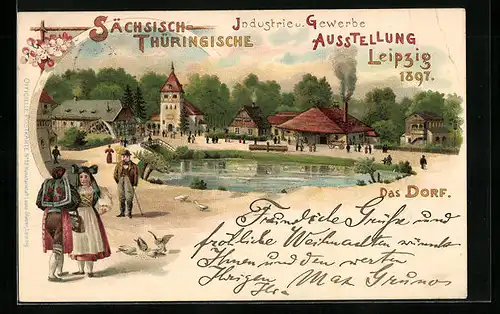 SÄCHSISCH-
THÜRINGISCHE
Industrie u. Gewerbe
AUSSTELLUNG
Leipzig
1897.
DAS DORF.
Freundliche Grüße und
fröhliche Weihnachten wünscht
Ihnen und den werten
Ihrigen Ihr Max